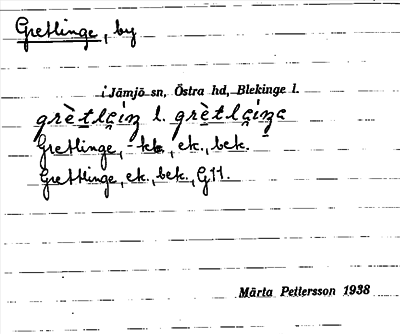 Gretlinge, by
i Jämjö sn, Östra hd, Blekinge l.
grètlɑ̨iŋ l. grètlɑ̨iŋɑ
Gretlinge, -kk-, ek., bek.
Grettlinge, ek., bek., G11.
Märta Pettersson 1938